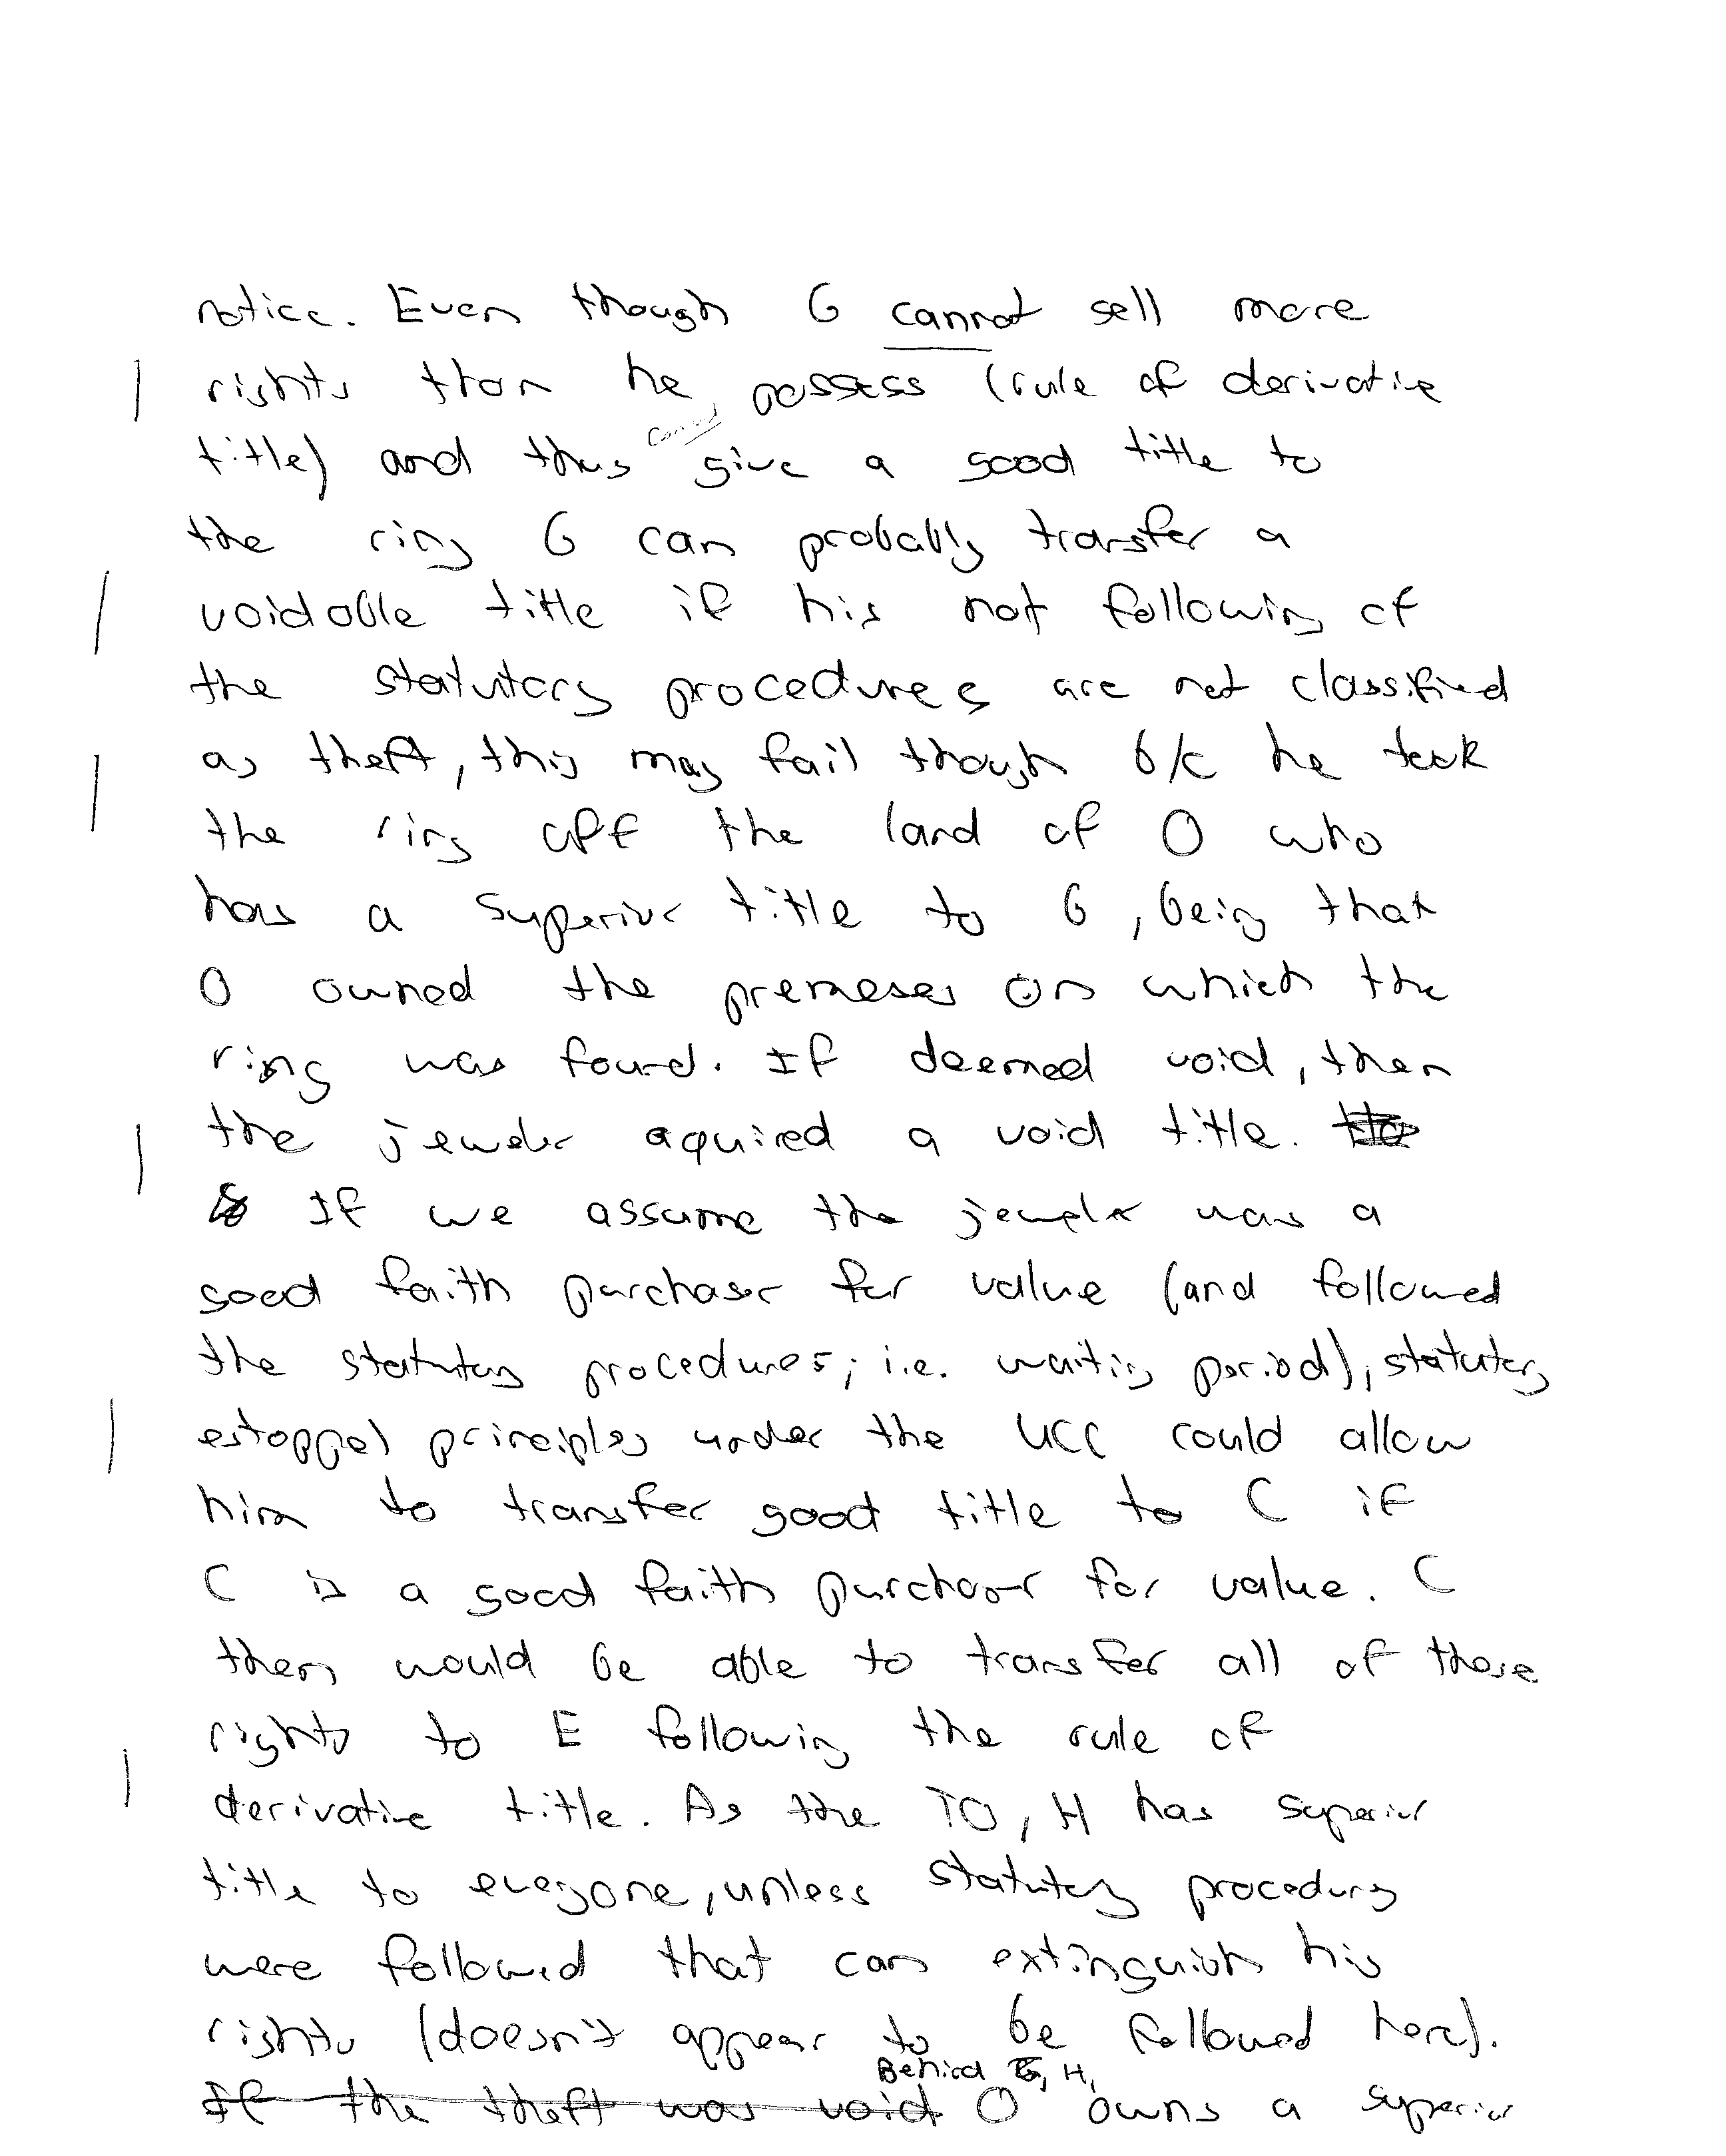 notice. Even though G cannot sell more
rights than he possess (rule of derivative
title) and thus cannot give a good title to
the ring G can probably transfer a
voidable title if his not following of
the statutory procedures are not classified
as theft, this may fail though b/c he took
the ring off the land of O who
has a superior title to G, being that
O owned the premeses on which the
ring was found. If deemed void, then
the jeweler aquired a void title.
If we assume the jeweler was a
good faith purchaser for value (and followed
the statutory procedures; i.e. waiting period), statutory
estoppel principles under the UCC could allow
him to transfer good title to C if
C is a good faith purchaser for value. C
then would be able to transfer all of those
rights to E following the rule of
derivative title. As the TO, H has superior
title to everyone, unless statutory procedures
were followed that can extinguish his
rights (doesn't appear to be followed here).
Behind H,
If the theft was void O owns a superior